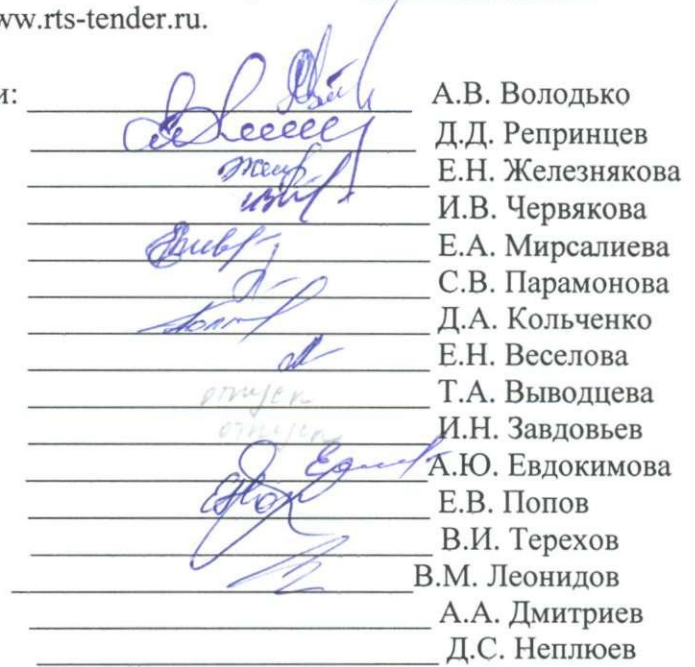 ww.rts-tender.ru.
и: А.В. Володько
Д.Д. Репринцев
Е.Н. Железнякова
И.В. Червякова
Е.А. Мирсалиева
С.В. Парамонова
Д.А. Кольченко
Е.Н. Веселова
отпуск Т.А. Выводцева
отпуск И.Н. Завдовьев
А.Ю. Евдокимова
Е.В. Попов
В.И. Терехов
В.М. Леонидов
А.А. Дмитриев
Д.С. Неплюев